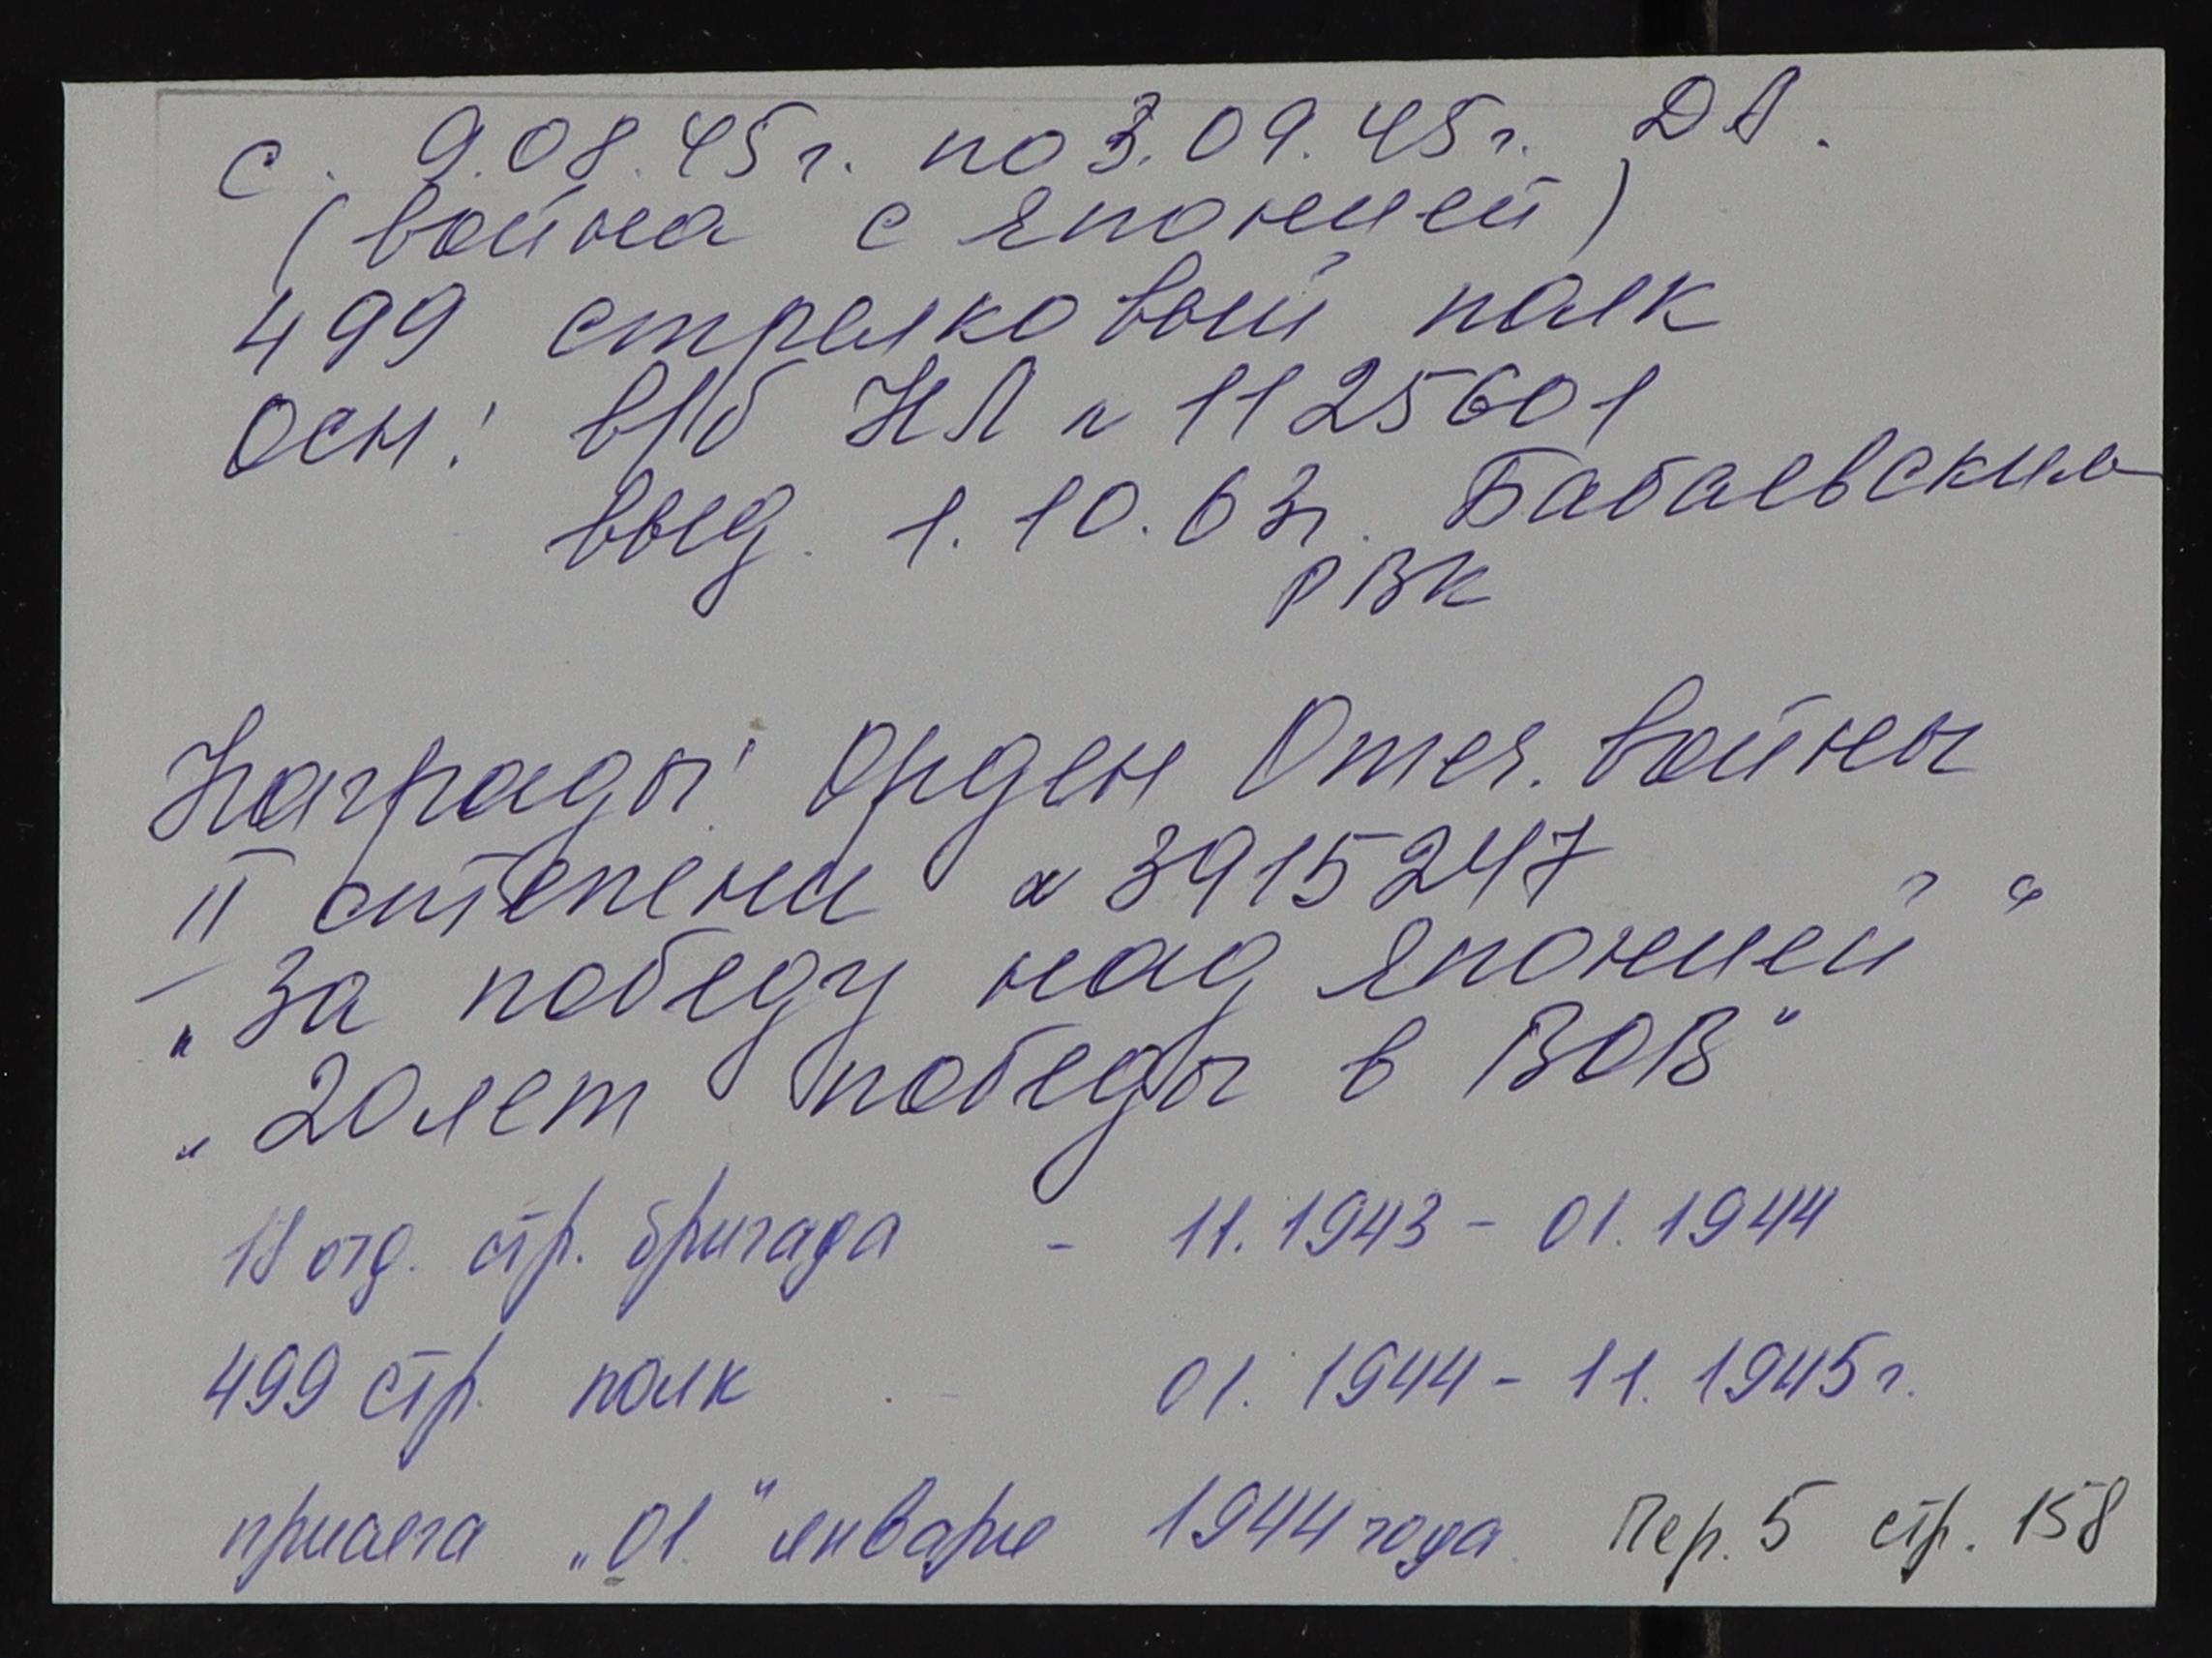 с. 9.08.45г. по 3.09.45г. ДА.
(война с Японией)
499 стрелковый полк
Осн: в/б НЛ № 1125601
выд. 1.10.63г. Бабаевским
РВК
Награды: Орден Отеч. войны
II степени № 3915247
„За победу над Японией“
„20 лет победы в ВОВ“
18 отд. стр. бригада - 11.1943 - 01.1944
499 стр. полк - 01.1944 - 11.1945г.
присяга „01“ январе 1944 года Пер. 5 стр. 158